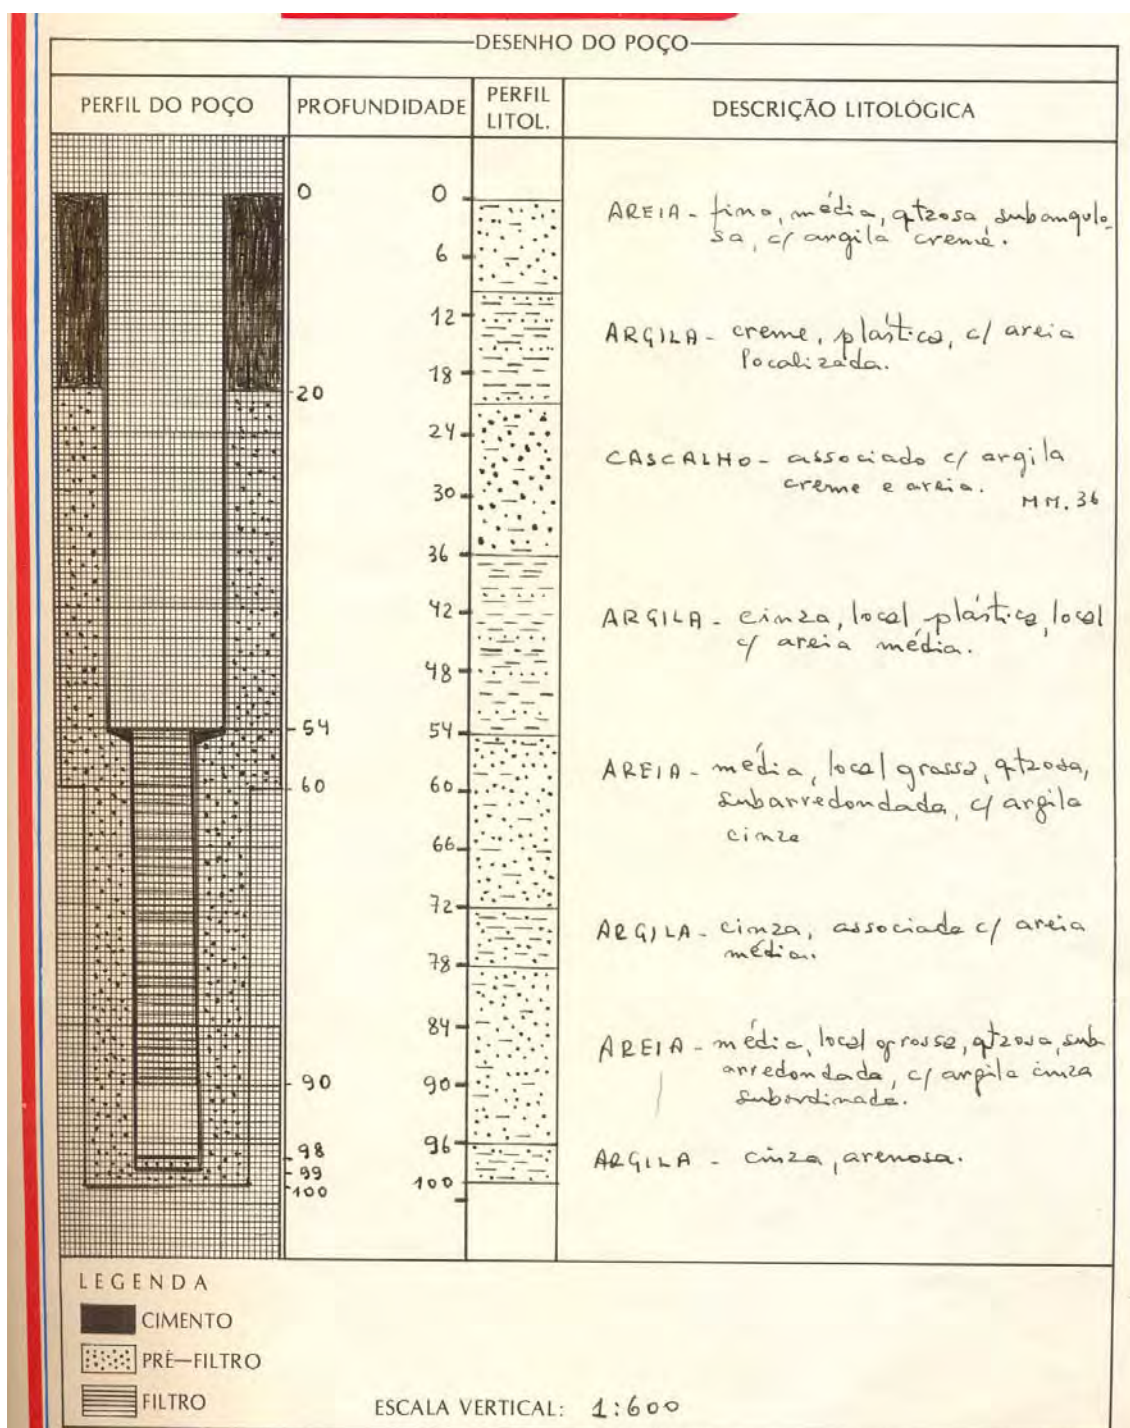 DESENHO DO POÇO
PERFIL DO POÇO
PROFUNDIDADE
PERFIL
LITOL.
DESCRIÇÃO LITOLÓGICA
0
20
54
60
90
98
99
100
0
6
12
18
24
30
36
42
48
54
60
66
72
78
84
90
96
100
AREIA - fina, média, qtzosa, subangulo-
sa, c/ argila creme.
ARGILA - creme, plástica, c/ areia
localizada.
CASCALHO - associado c/ argila
creme e areia.
MM. 36
ARGILA - cinza, local plástica, local
c/ areia média.
AREIA - média, local grossa, qtzosa,
subarredondada, c/ argila
cinza
ARGILA - cinza, associada c/ areia
média.
AREIA - média, local grossa, qtzosa, sub-
arredondada, c/ argila cinza
subordinada.
ARGILA - cinza, arenosa.
LEGENDA
CIMENTO
PRÉ-FILTRO
FILTRO
ESCALA VERTICAL: 1:600